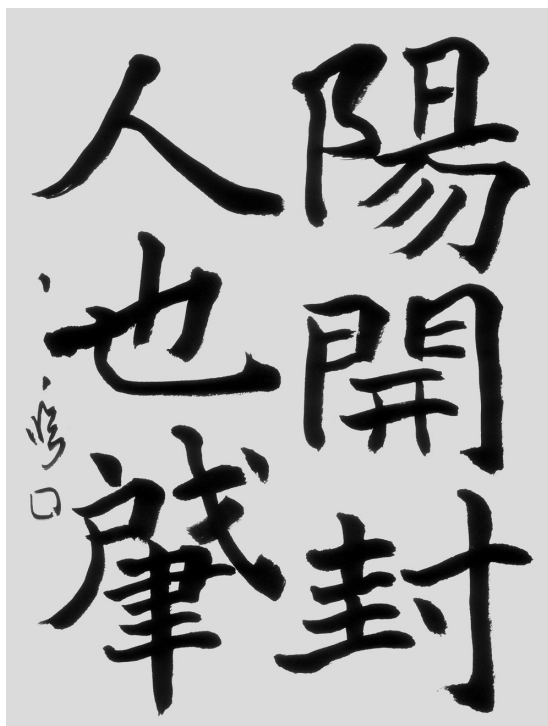 陽開封
人也肈